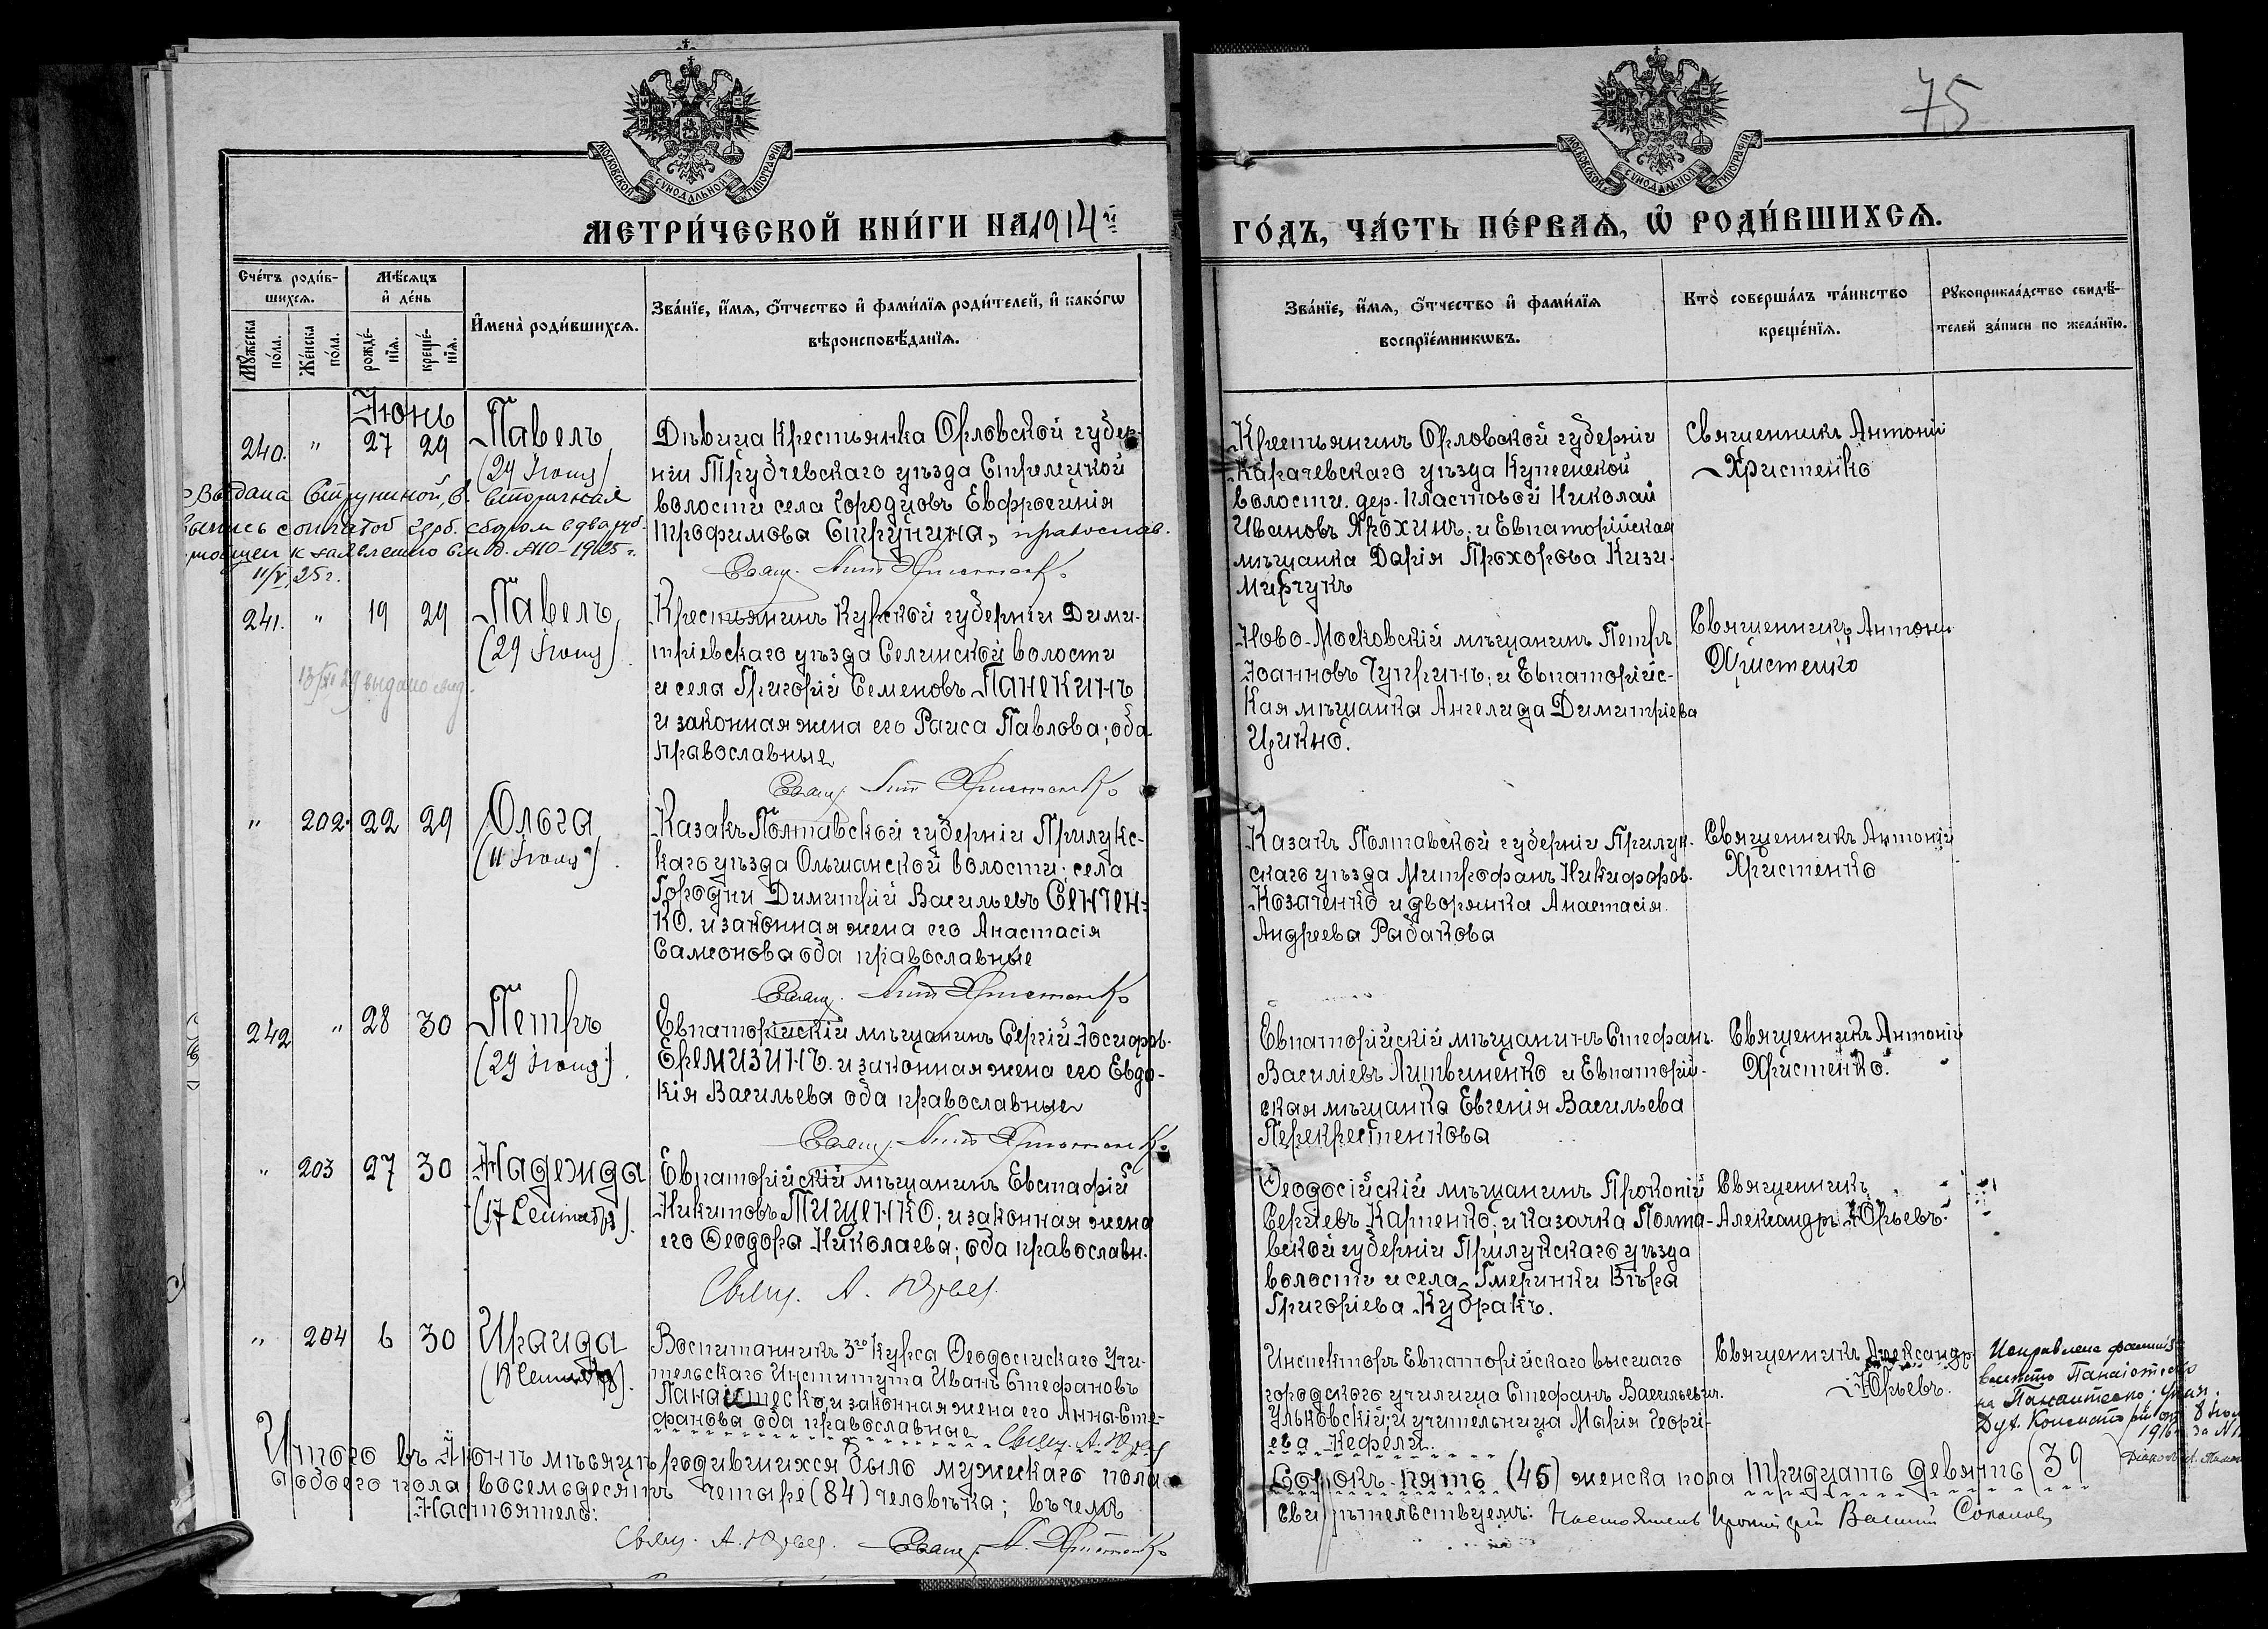 75
МОСКОВСКОЙ СѴНОДАЛЬНОЙ ТИПОГРАФІИ
МОСКОВСКОЙ СѴНОДАЛЬНОЙ ТИПОГРАФІИ
МЕТРИ́ЧЕСКОЙ КНИ́ГИ НА 1914й
ГО́ДЪ, ЧА́СТЬ ПЕ́РВАѦ, Ѡ҆ РОДИ́ВШИХСѦ.
Сче́тъ роди́в-
шихсѧ.
Мѣ́сяцъ
и҆ де́нь
Мꙋ́жеска
по́ла.
Же́нска
по́ла.
рожде́-
нїѧ.
креще́-
нїѧ.
И҆мена̀ роди́вшихсѧ.
Зва́нїе, и҆́мѧ, ѻ҆́тчество и҆ фами́лїѧ роди́телей, и҆ како́гѡ
вѣроисповѣ́данїѧ.
Зва́нїе, и҆́мѧ, ѻ҆́тчество и҆ фами́лїѧ
воспрїе́мникѡвъ.
Кто̀ соверша́лъ та́инство
креще́нїѧ.
Рꙋкоприкла́дство свидѣ́-
телей за́писи по жела́нїю.
Іюнь
240. " 27 29 Павелъ
(29 Іюня)
Дѣвица Крестьянка Орловской губер-
ніи Трубчевскаго уѣзда Стрелецкой
волости села Городцовъ Евфросинія
Трофимова Струнина, православ.
Свящ. Ант Христенко
Выдана Струниной, Е. вторичная
выпись с оплатой герб. сбором
к заявлению 1925 г.
11/V 25 г.
Крестьянинъ Орловской губерніи
Карачевскаго уѣзда
волости. дер. Пластовой Николай
Ивановъ Ярохинъ. и Евпаторійская
мѣщанка Дарія Прохорова Кизи-
мирчукъ
Священникъ Антоній
Христенко
241. " 19 29 Павелъ
(29 Іюня).
выдано свид.
Крестьянинъ Курской губерніи Дими-
тріевскаго уѣзда Селинской волости
и села Григорій Семеновъ Панекинъ
и законная жена его Раиса Павлова; оба
православные
Свящ. Ант Христенко
Ново-Московскій мѣщанинъ Петръ
Іоанновъ Чупринъ; и Евпаторійс-
кая мѣщанка Ангелида Димитріева
Цикно.
Священникъ Антоній
Христенко
" 202. 22 29 Ольга
(11 Іюля).
Казакъ Полтавской губерніи Прилукс-
каго уѣзда Ольшанской волости; села
Городни Димитрій Васильевъ Сенчен-
ко. и законная жена его Анастасія
Самсонова оба православные
Свящ. Ант Христенко
Казакъ Полтавской губерніи Прилук-
скаго уѣзда Митрофанъ Никифоров.
Козаченко и дворянка Анастасія
Андреева Рабакова
Священникъ Антоній
Христенко
242 " 28 30 Петръ
(29 Іюня).
Евпаторійскій мѣщанинъ Сергій Іосифов.
Еремизинъ. и законная жена его Евдо-
кія Васильева оба православные
Свящ. Ант Христенко
Евпаторійскій мѣщанинъ Стефанъ
Василіевъ Литвиненко и Евпаторій-
ская мѣщанка Евгенія Васильева
Перекрестенкова
Священникъ Антоній
Христенко.
" 203 27 30 Надежда
(17 Сентября).
Евпаторійскій мѣщанинъ Евстафій
Никитовъ Тищенко; и законная жена
его Ѳеодора Николаева; оба православн.
Свящ. А. Юрьев.
Ѳеодосійскій мѣщанинъ Прокопій
Сергіевъ Карпенко; и казачка Полта-
вской губерніи Прилукскаго уѣзда
волости и села Гмеринки Вѣра
Григоріева Кубракъ.
Священникъ
Александръ Юрьевъ.
" 204 6 30 Ираида
(18 Сентября).
Воспитанникъ 3го курса Ѳеодосійскаго Учи-
тельскаго Института Иванъ Стефановъ
и законная жена его Анна Сте-
фанова оба православные Свящ. А. Юрьев
Инспекторъ Евпаторійскаго высшаго
городского училища Стефанъ Васильевич.
Ульковскій; и учительница Марія Георгі-
ева Кефели.
Священникъ Александр
Юрьевъ.
Исправлена фамилія
вместо Панаіотеско
на Панаитеско. указ.
Дух. Консисторіи от 8
1916 за №
Итого въ Іюнѣ мѣсяцѣ родившихся было мужескаго пола
Сорокъ-пять (45) женска пола тридцать девять (39
а обоего пола восемьдесятъ четыре (84) человѣка; въ чемъ
свидѣтельствуемъ: Настоятель Протоіерей Василій
Настоятель:
Свящ. А. Юрьев. Свящ. А. Христенко